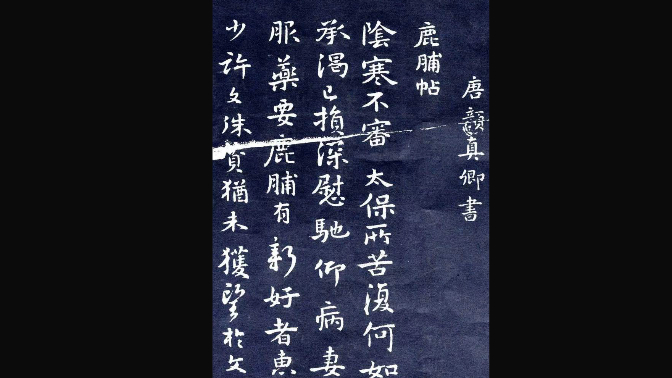 唐顏真卿書
鹿脯帖
陰寒不審太保所苦復何如
承渴已損深慰馳仰病妻
服藥要鹿脯有新好者惠
少許文殊賛猶未獲望於文